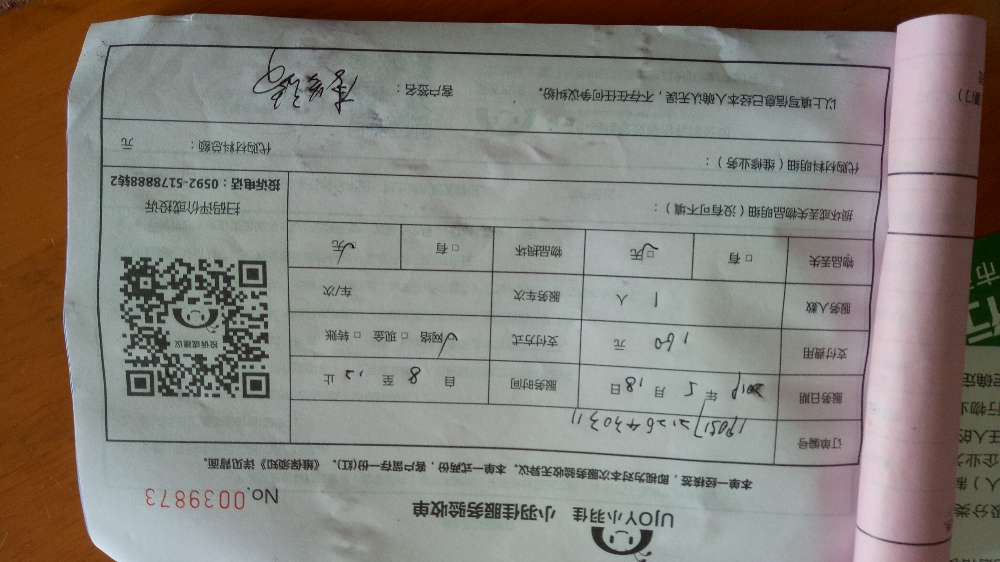 UJOY小羽佳 小羽佳服务验收单
No.0039873
本单一经核签，即视为对本次服务验收无异议。本单一式两份，客户留存一份(红)。《维保须知》详见背面。
订单编号 190517212643031
服务日期 2019 年 5 月 18 日 服务时间 自 8 至 12 止
支付费用 160 元 支付方式 网络 □ 现金 □ 转账
服务人数 1 人 服务车次 车/次
物品丢失 □ 有 □ 无 物品损坏 □ 有 无
投诉或建议
扫码评价或投诉
投诉电话：0592-5178888转2
损坏或丢失物品明细（没有可不填）：
代购材料明细（维修业务）： 代购材料总额： 元
以上填写信息已经本人确认无误，不存在任何争议纠纷。 客户签名：